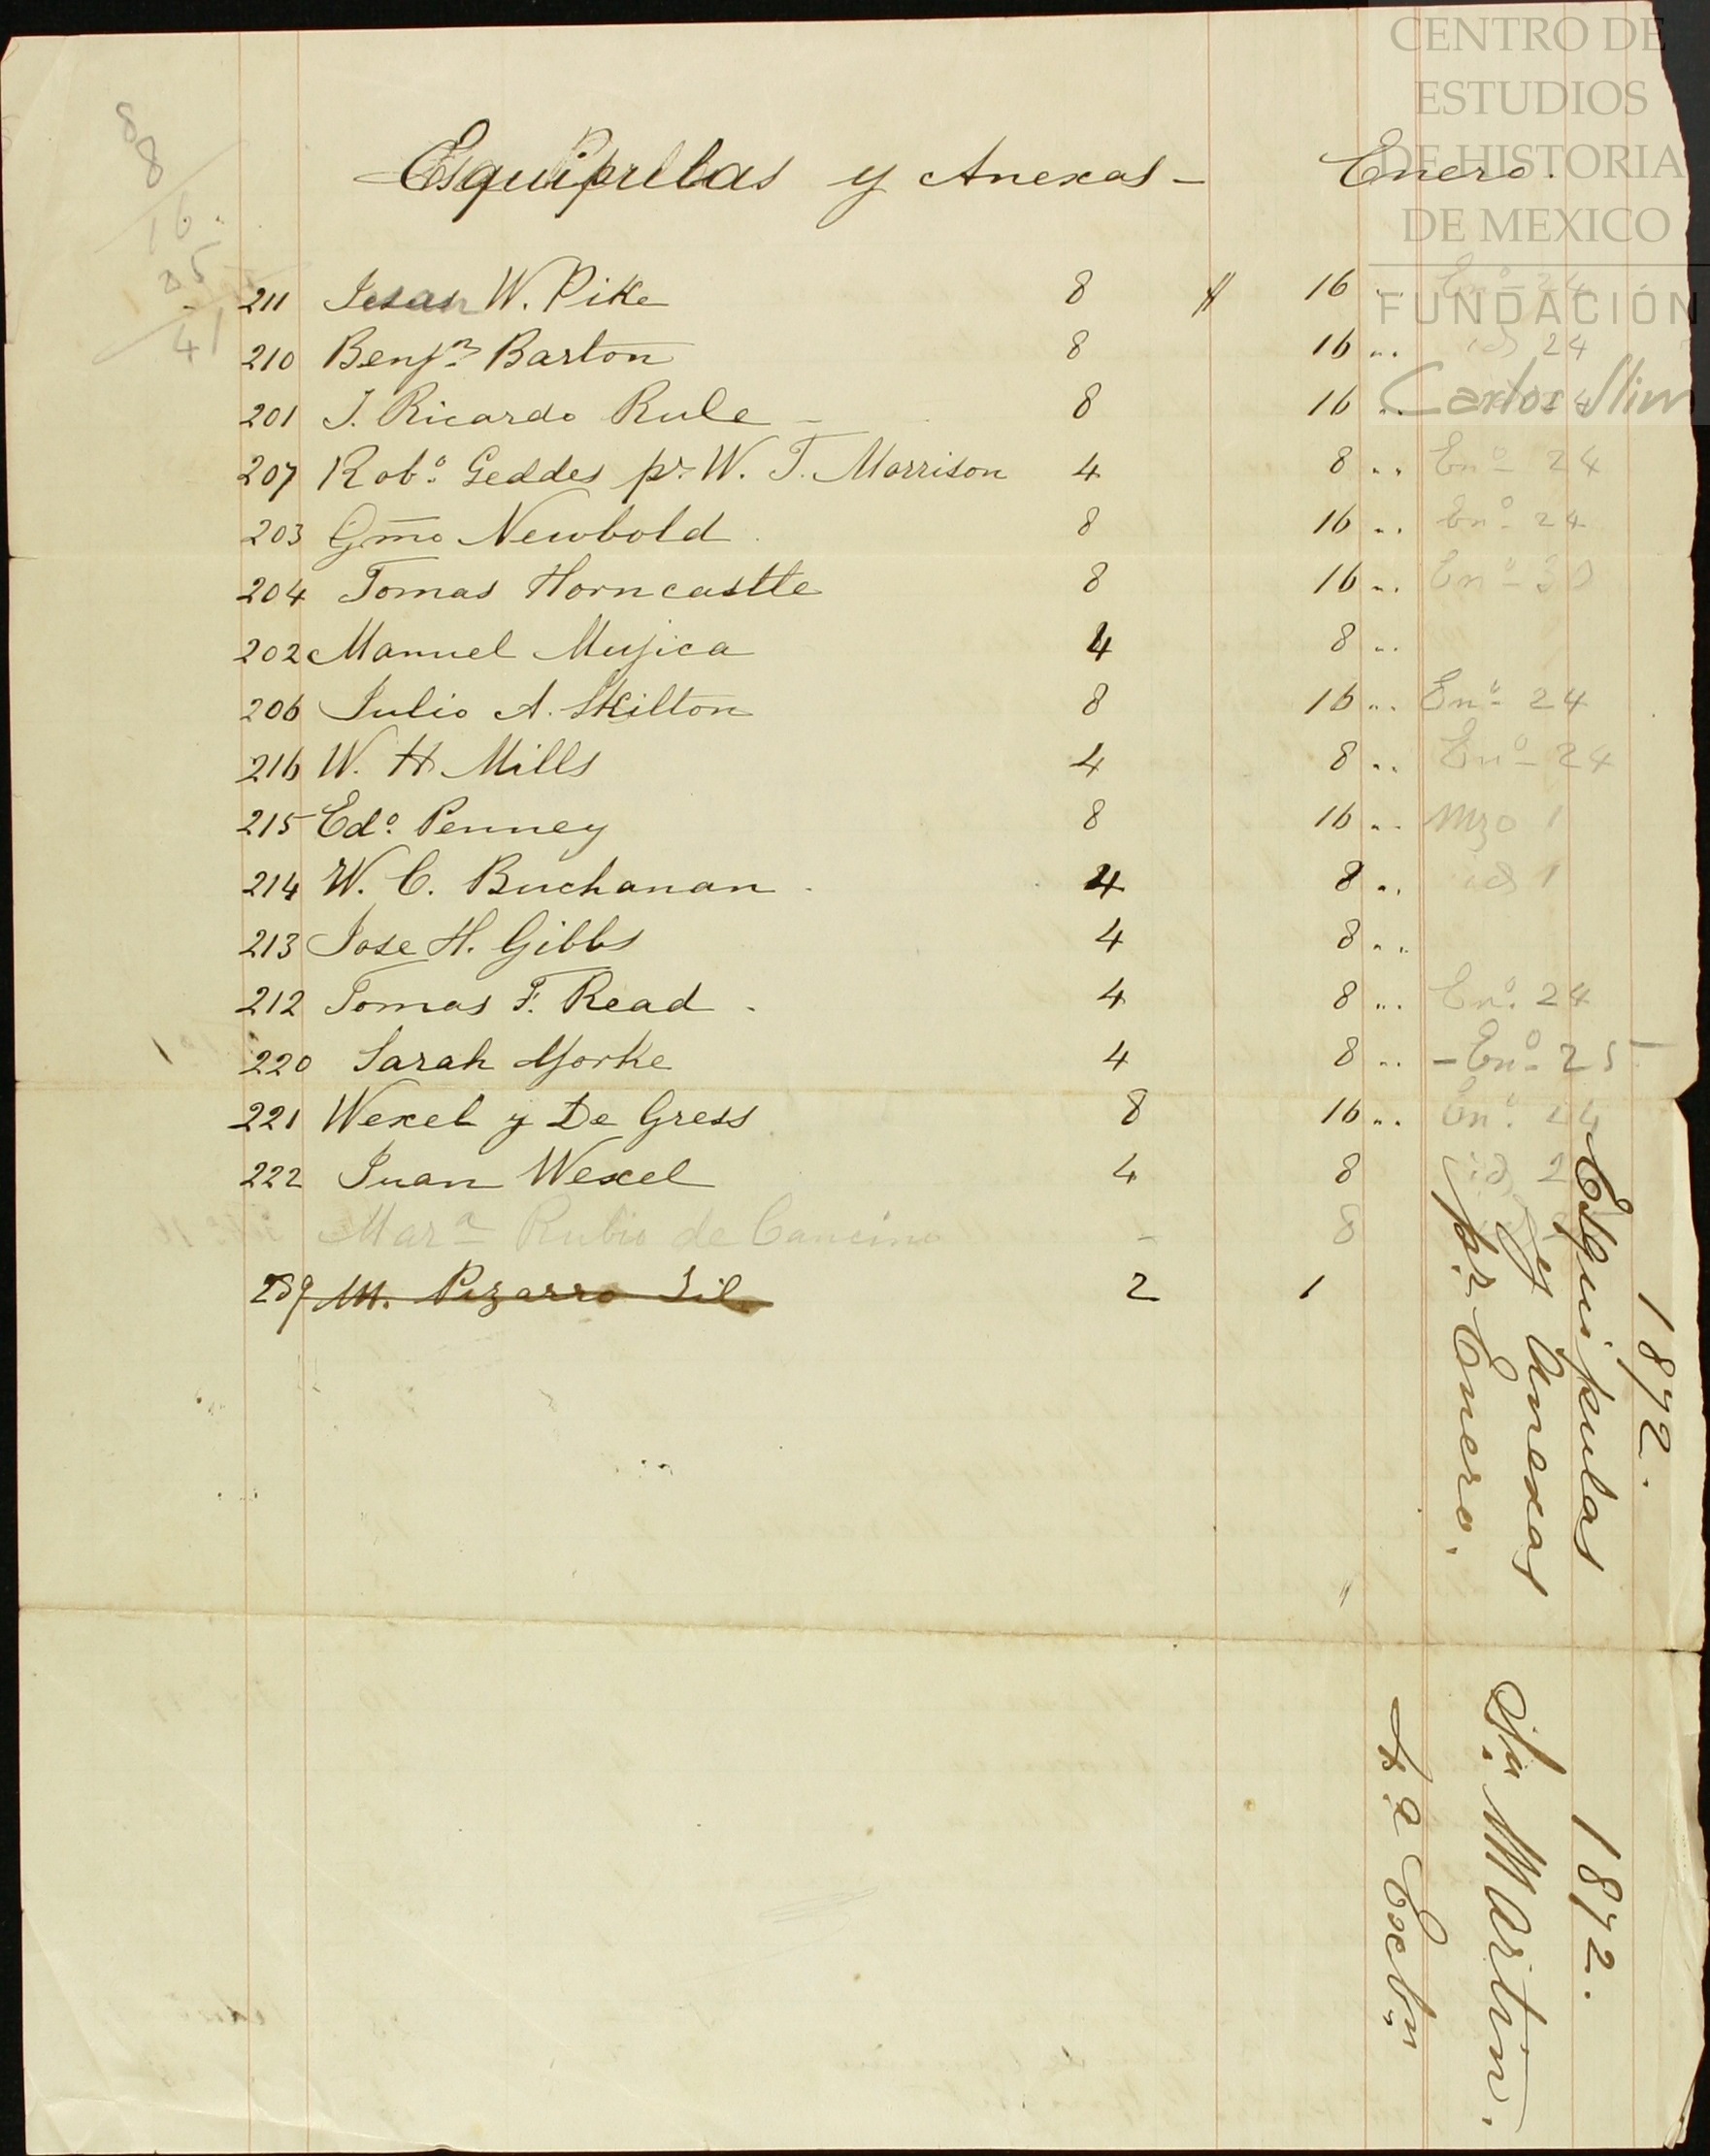 CENTRO DE
ESTUDIOS
DE HISTORIA
DE MEXICO
FUNDACIÓN
Carlos Slim
88
16
25
41
Esquipulas y Anexas - Enero.
211 Jesan W. Pike 8 $ 16 .. En.º 24
210 Benj.n Barton 8 16 .. id 24
201 J. Ricardo Rule - 8 16 .. 24
207 Rob.º Geddes p.r W. T. Morrison 4 8 .. En.º 24
203 Gmo Newbold 8 16 .. En.º 24
204 Tomas Horncastle 8 16 .. En.º 30
202 Manuel Mujica 4 8 ..
206 Julio A. Skilton 8 16 .. En.º 24
216 W. H Mills 4 8 .. En.º 24
215 Ed.º Penney 8 16 .. Mzo 1
214 W. C. Buchanan 4 8 .. id 1
213 Jose H. Gibbs 4 8 ..
212 Tomas F. Read 4 8 .. En.º 24
220 Sarah Yorke 4 8 .. - En.º 25
221 Wexel y De Gress 8 16 .. En.º 24
222 Juan Wexel 4 8 id 2
Mar.a Rubio de Cancino - 8
239 M. Pizarro Gil 2 1
1872.
Esquipulas
y Anexas
p.r Enero.
1872.
Sn. Martin.